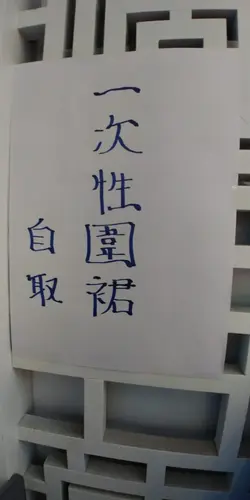 一次性圍裙
自取